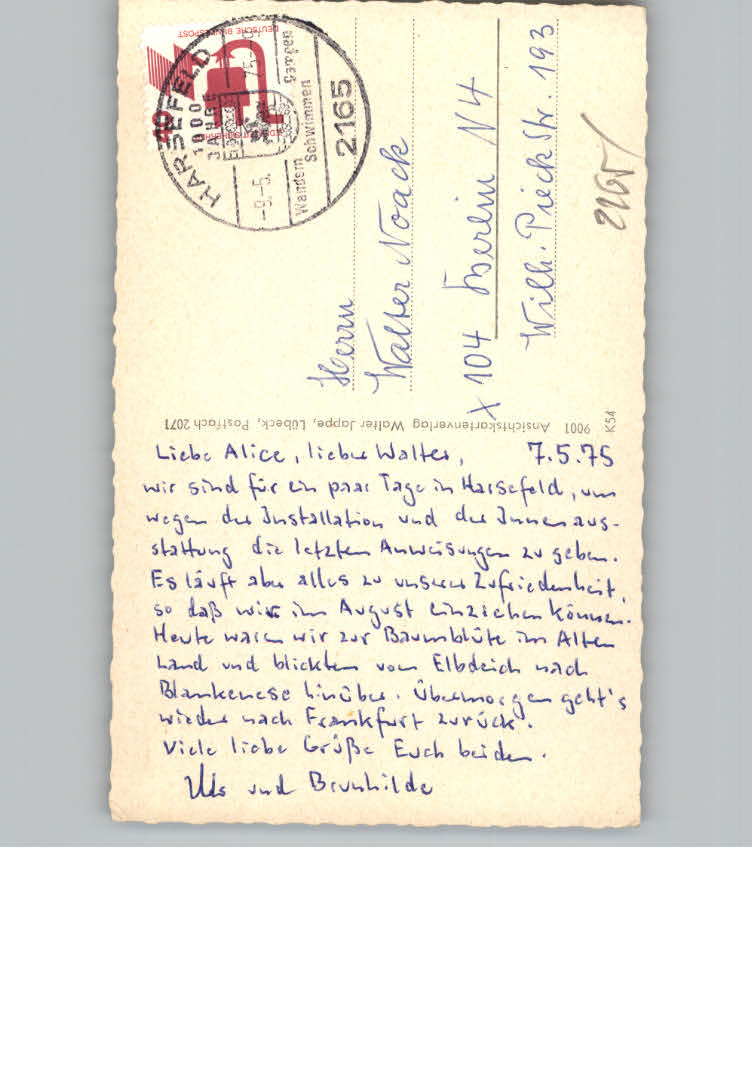 DEUTSCHE BUNDESPOST
40
HARSEFELD
1000
JAHRE
-9.-5. 75
Wandern
Schwimmen
2165
Herrn
Walter Noack
X 104 Berlin N4
Wilh. Pieck Str. 193
2165
9001 Ansichtskartenverlag Walter Jappe, Lübeck, Postfach 2071
K54
Liebe Alice, lieber Walter, 7.5.75
wir sind für ein paar Tage in Harsefeld, um
wegen der Installation und der Innenaus-
stattung die letzten Anweisungen zu geben.
Es läuft aber alles zu unserer Zufriedenheit,
so daß wir im August einziehen können.
Heute waren wir zur Baumblüte im Alten
Land und blickten vom Elbdeich nach
Blankenese hinüber. Übermorgen geht's
wieder nach Frankfurt zurück.
Viele liebe Grüße Euch beiden.
und Brunhilde